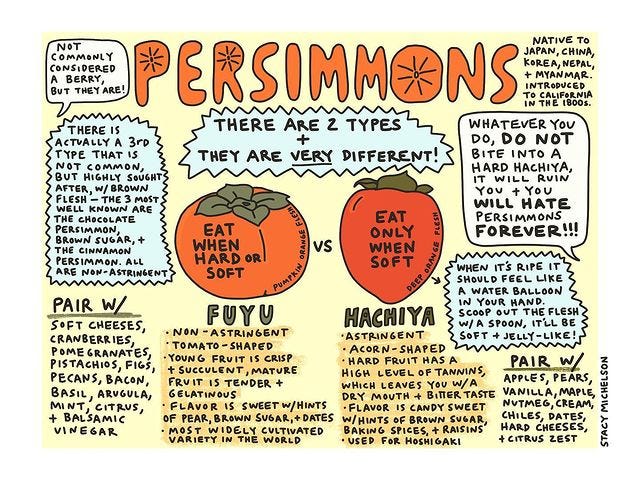 NOT
COMMONLY
CONSIDERED
A BERRY,
BUT THEY ARE!
PERSIMMONS
NATIVE TO
JAPAN, CHINA,
KOREA, NEPAL,
+ MYANMAR.
INTRODUCED
TO CALIFORNIA
IN THE 1800s.
THERE ARE 2 TYPES
+
THEY ARE VERY DIFFERENT!
THERE IS
ACTUALLY A 3RD
TYPE THAT IS
NOT COMMON,
BUT HIGHLY SOUGHT
AFTER, W/ BROWN
FLESH - THE 3 MOST
WELL KNOWN ARE
THE CHOCOLATE
PERSIMMON,
BROWN SUGAR, +
THE CINNAMON
PERSIMMON. ALL
ARE NON-ASTRINGENT
WHATEVER YOU
DO, DO NOT
BITE INTO A
HARD HACHIYA,
IT WILL RUIN
YOU + YOU
WILL HATE
PERSIMMONS
FOREVER!!!
EAT
WHEN
HARD OR
SOFT
PUMPKIN ORANGE FLESH
VS
EAT
ONLY
WHEN
SOFT
DEEP ORANGE FLESH
WHEN IT'S RIPE IT
SHOULD FEEL LIKE
A WATER BALLOON
IN YOUR HAND.
SCOOP OUT THE FLESH
W/ A SPOON, IT'LL BE
SOFT + JELLY-LIKE!
PAIR W/
SOFT CHEESES,
CRANBERRIES,
POMEGRANATES,
PISTACHIOS, FIGS,
PECANS, BACON,
BASIL, ARUGULA,
MINT, CITRUS,
+ BALSAMIC
VINEGAR
FUYU
· NON-ASTRINGENT
· TOMATO-SHAPED
· YOUNG FRUIT IS CRISP
+ SUCCULENT, MATURE
FRUIT IS TENDER +
GELATINOUS
· FLAVOR IS SWEET W/ HINTS
OF PEAR, BROWN SUGAR, + DATES
· MOST WIDELY CULTIVATED
VARIETY IN THE WORLD
HACHIYA
· ASTRINGENT
· ACORN-SHAPED
· HARD FRUIT HAS A
HIGH LEVEL OF TANNINS,
WHICH LEAVES YOU W/ A
DRY MOUTH + BITTER TASTE
· FLAVOR IS CANDY SWEET
W/ HINTS OF BROWN SUGAR,
BAKING SPICES, + RAISINS
· USED FOR HOSHIGAKI
PAIR W/
APPLES, PEARS,
VANILLA, MAPLE,
NUTMEG, CREAM,
CHILES, DATES,
HARD CHEESES,
+ CITRUS ZEST
STACY MICHELSON